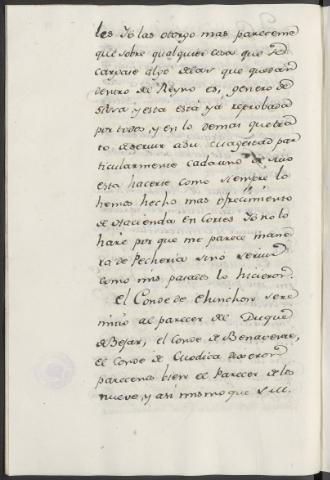 les Yó las otorgo mas pareceme
que sobre qualquier cosa que se
cargase algo de las que quedan
dentro del Reyno es, genero de
sisa y esta está ya reprobada
por todos, y en lo demas que tra
to de servir a su Magestad par
ticularmente cada uno de suio
esta hacerlo como siempre lo
hemos hecho mas ofrecimiento
de Hacienda en Cortes Yó no lo
haré por que me parece mane
ra de Pecheria sinó servir
como mis pasados lo hicieron.
El Conde de Chinchon se re
mitió al parecer del Duque
de Bejar, el Conde de Benavente,
el Conde de Modica dixeron
parecerles bien el Parecer de los
nueve, y asi mismo que